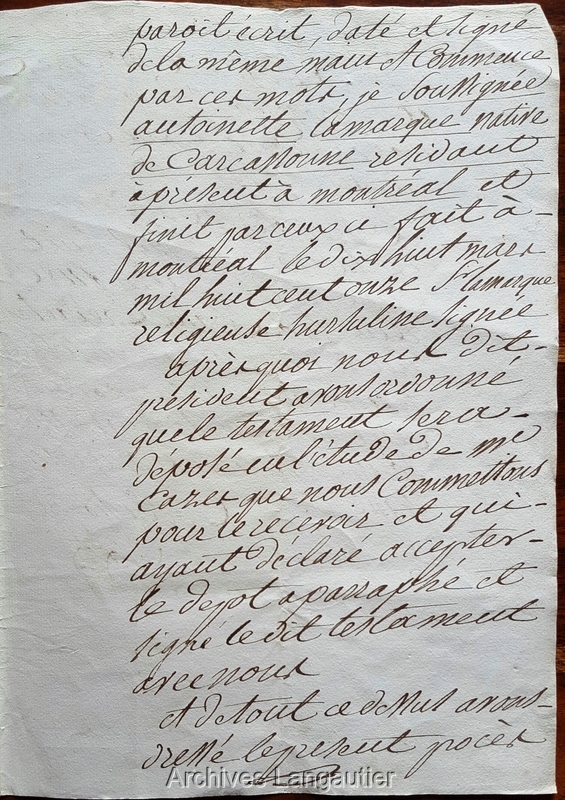 paroit écrit, daté et signé
de la même main et Commence
par ces mots, je Soussignée
antoinette Lamarque native
de Carcassonne residant
apresent a montréal et
finit par ceux ci fait à -
montréal le dix huit mars
mil huit cent onze Sr lamarque
religieuse hursuline signée
après quoi nous dit -
président avons ordonné
que le testament sera -
déposé en l'étude de me
Cazes que nous Commettons
pour le recevoir et qui -
ayant déclaré accepter -
le depot a parraphé et
signé le dit testament
avec nous
et de tout ce dessus avons -
dressé le present pocès
Archives Langautier